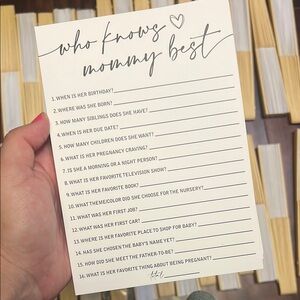 who knows
mommy best
1. WHEN IS HER BIRTHDAY?
2. WHERE WAS SHE BORN?
3. HOW MANY SIBLINGS DOES SHE HAVE?
4. WHEN IS HER DUE DATE?
5. HOW MANY CHILDREN DOES SHE WANT?
6. WHAT IS HER PREGNANCY CRAVING?
7. IS SHE A MORNING OR A NIGHT PERSON?
8. WHAT IS HER FAVORITE TELEVISION SHOW?
9. WHAT IS HER FAVORITE BOOK?
10. WHAT THEME/COLOR DID SHE CHOOSE FOR THE NURSERY?
11. WHAT WAS HER FIRST JOB?
12. WHAT WAS HER FIRST CAR?
13. WHERE IS HER FAVORITE PLACE TO SHOP FOR BABY?
14. HAS SHE CHOSEN THE BABY'S NAME YET?
15. HOW DID SHE MEET THE FATHER-TO-BE?
16. WHAT IS HER FAVORITE THING ABOUT BEING PREGNANT?